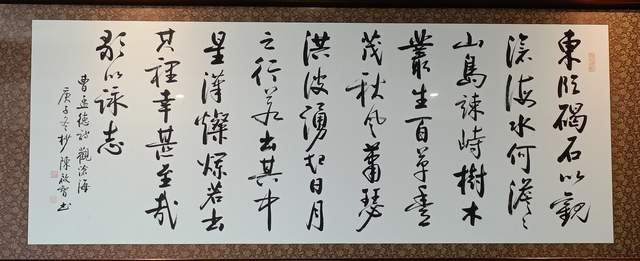 東臨碣石以觀
滄海水何澹〻
山島竦峙樹木
叢生百草豐
茂秋風蕭瑟
洪波湧起日月
之行若出其中
星漢燦爛若出
其裡幸甚至哉
歌以詠志
曹孟德詩觀滄海
庚子冬杪陳啟智書